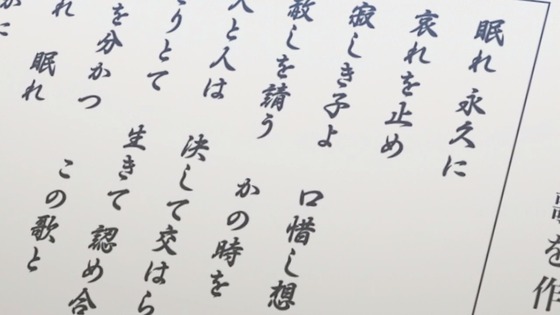 を作
眠れ 永久に
哀れを止め
寂しき子よ 口惜し想
赦しを請う かの時を
人と人は 決して交はら
りとて 生きて 認め合
を分かつ この歌と
れ 眠れ
に